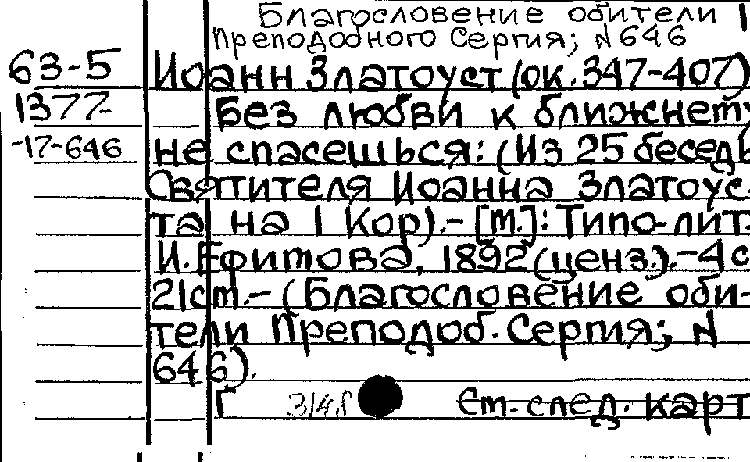 Благословение обители
Преподобного Сергия; N 646
63-5 Иоанн Златоуст (ок. 347-407)
1377- Без любви к ближнему
-17-646 не спасешься: (Из 25 бесед
Святителя Иоанна Златоус-
та на I Кор).- [М.]: Типо-лит.
И. Ефимова, 1892 (ценз.).-4 с
21см.- (Благословение оби-
тели Преподоб. Сергия; N
646).
Г 3148 См. след. карт